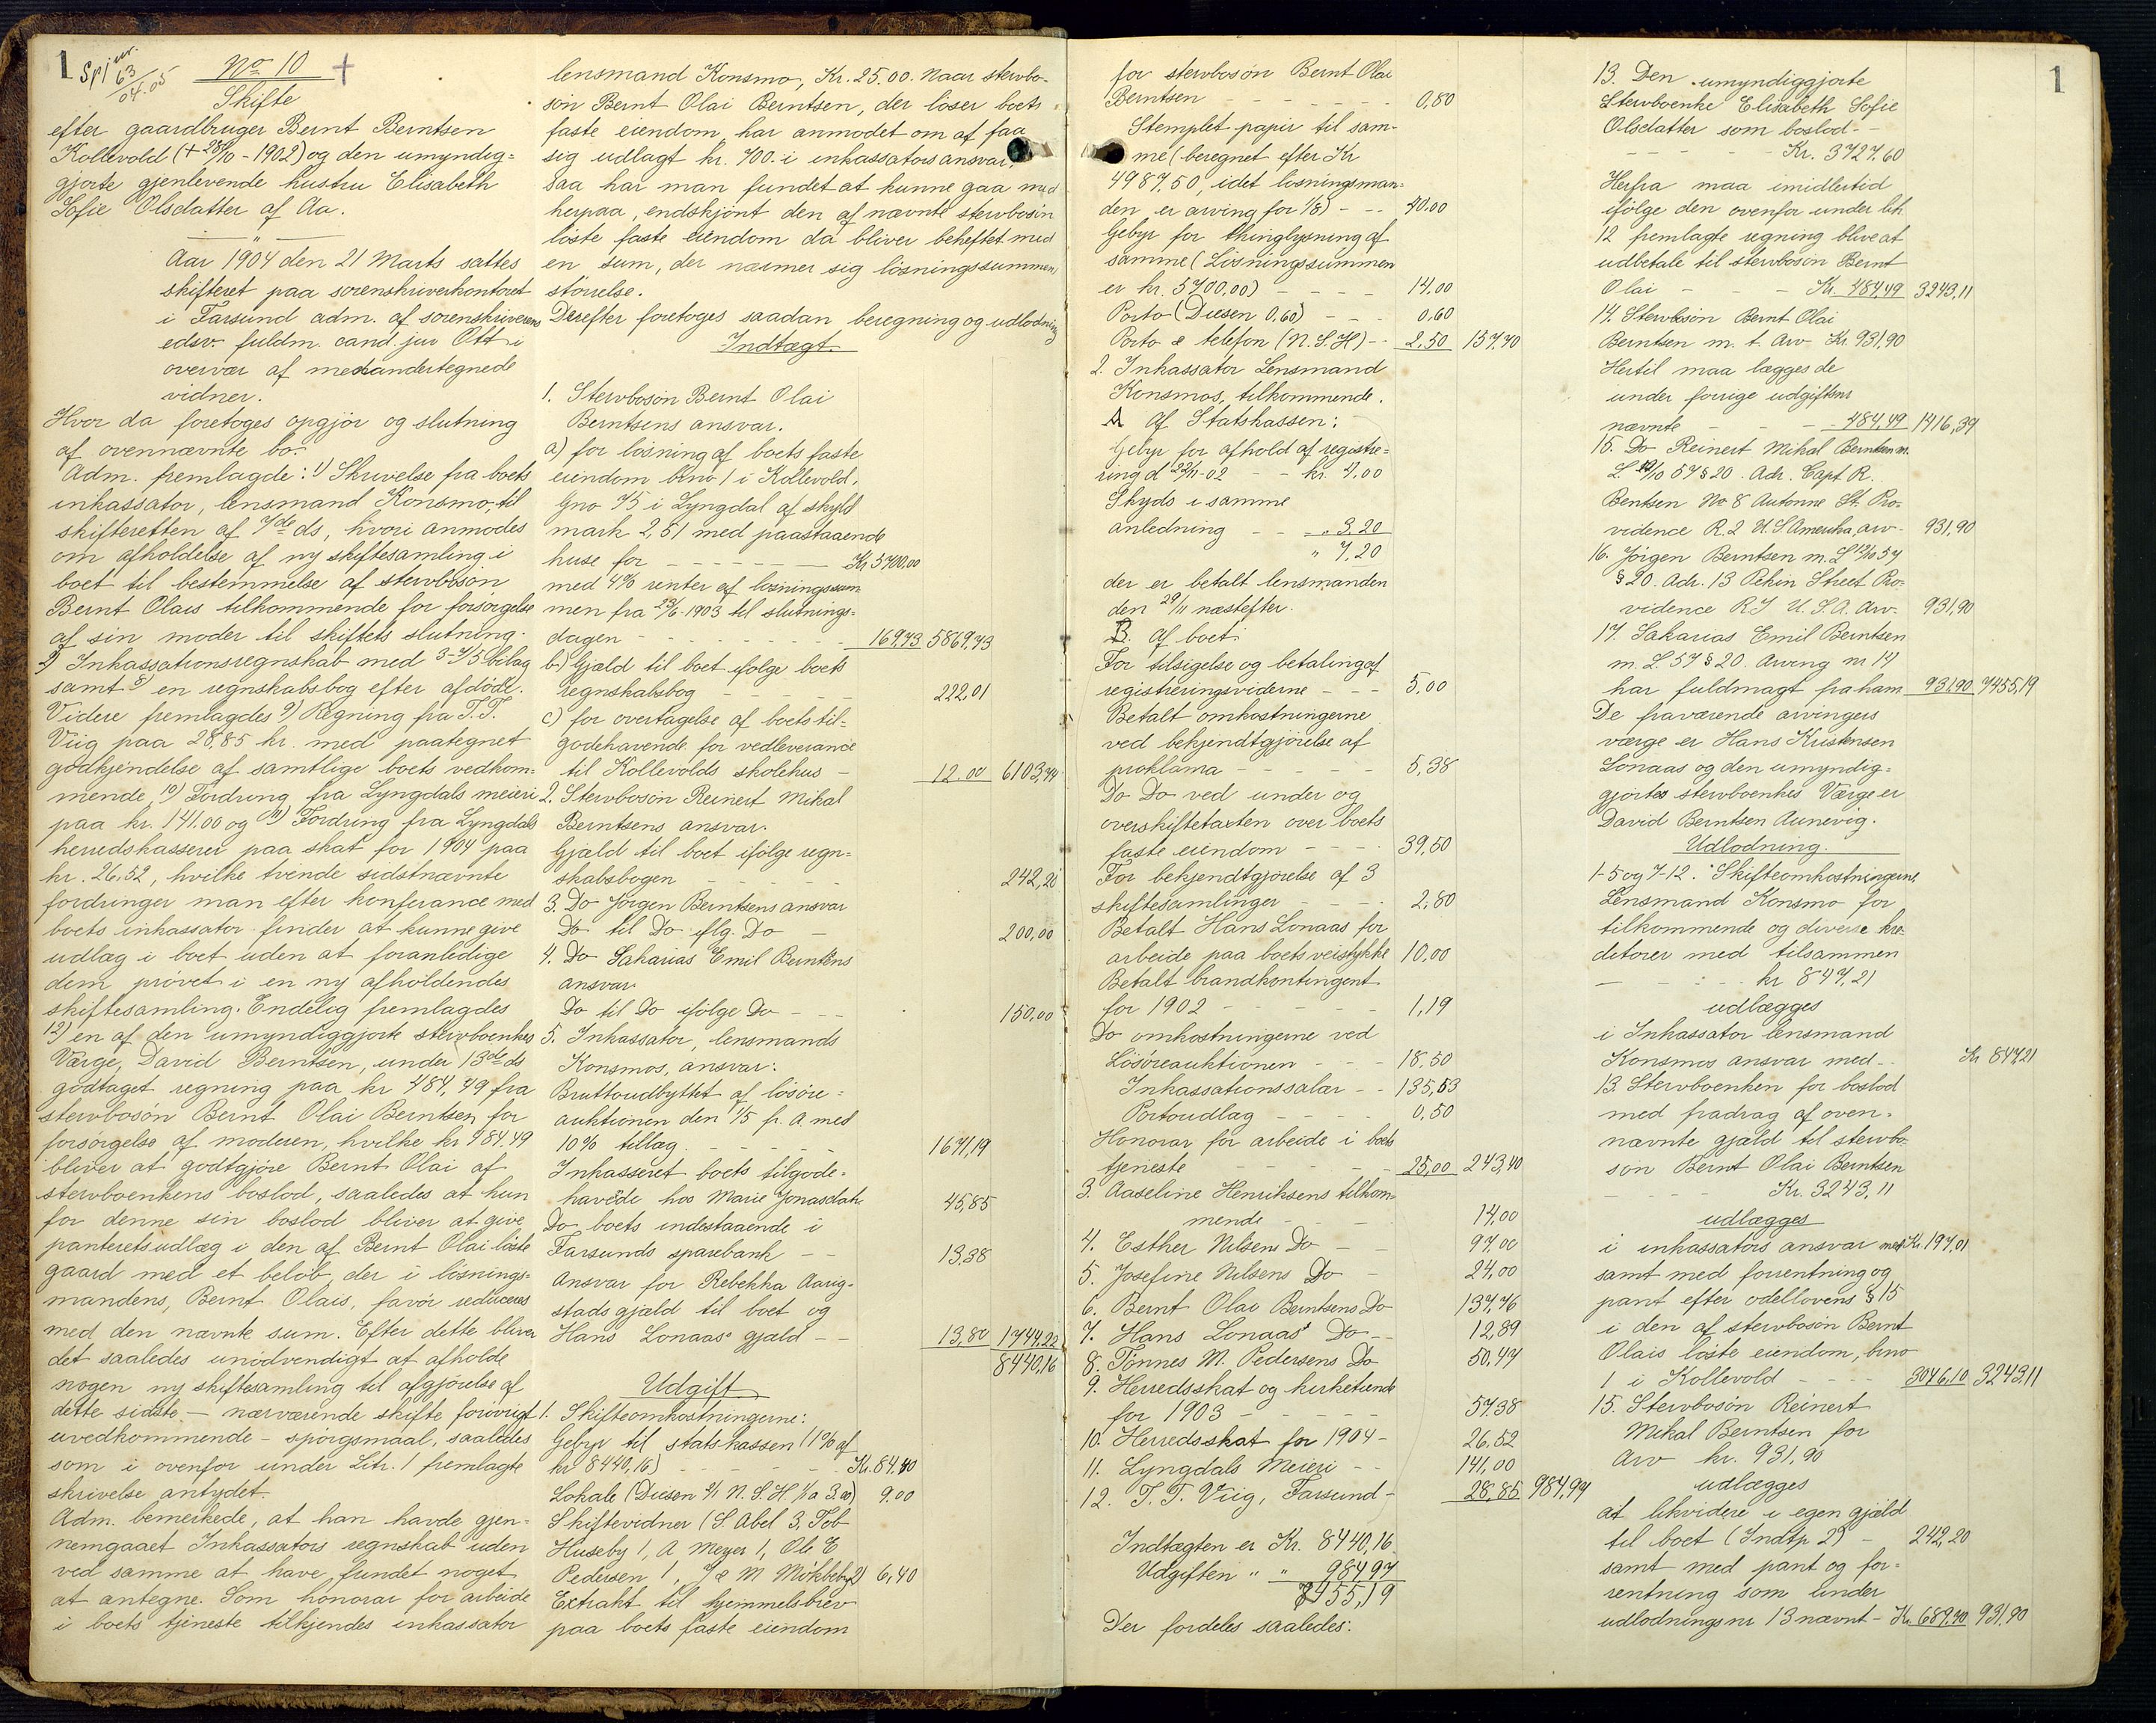 1
No 10
Skifte
efter gaardbruger Bernt Berntsen
Kollevold (+ 28/10 - 1902) og den umyndig=
gjorte gjenlevende hustru Elisabeth
Sofie Olsdatter af Aa.
Aar 1904 den 21 Marts sattes
skifteret paa sorenskriverkontoret
i Farsund adm. af sorenskriverens
edsv. fuldm. cand. jur Ott i
overvær af medundertegnede
vidner.
Hvor da foretoges opgjör og slutning
af ovennævnte bo.
Adm. fremlagde: 1) Skrivelse fra boets
inkassator, lensmand Konsmo, til
skifteretten af 7de ds, hvori anmodes
om afholdelse af ny skiftesamling i
boet til bestemmelse af stervbosön
Bernt Olais tilkommende for forsörgelse
af sin moder til skiftets slutning.
2) Inkassationsregnskab med 3-7/5 bilag
samt 8) en regnskabsbog efter afdöde.
Videre fremlagdes 9) Regning fra T. T.
Viig paa 28,85 kr. med paategnet
godkjendelse af samtlige boets vedkom=
mende, 10) Fordring fra Lyngdals meieri
paa kr. 141.00 og 11) Fordring fra Lyngdals
herredskasserer paa skat for 1904 paa
kr. 26,52, hvilke tvende sidstnævnte
fordringer man efter konferance med
boets inkassator finder at kunne give
udlæg i boet uden at foranledige
dem prövet i en ny afholdendes
skiftesamling. Endelig fremlagdes
12) en af den umyndiggjorte stervboenkes
Værge, David Berntsen, under 13de ds
godtaget regning paa kr 484,49 fra
stervbosön Bernt Olai Berntsen for
forsörgelse af moderen, hvilke kr 484.49
bliver at godtgjöre Bernt Olai af
stervboenkens boslod, saaledes at hun
for denne sin boslod bliver at give
panteretsudlæg i den af Bernt Olai löste
gaard med et belöb, der i lösnings=
mandens, Bernt Olais, favör reduceres
med den nævnte sum. Efter dette bliver
det saaledes unödvendigt at afholde
nogen ny skiftesamling til afgjörelse af
dette sidste - nærværende skifte forövrigt
uvedkommende - spörgsmaal, saaledes
som i ovenfor under Litr. 1 fremlagte
skrivelse antydet.
Adm. bemerkede, at han havde gjen=
nemgaaet Inkassators regnskab uden
ved samme at have fundet noget
at antegne. Som honorar for arbeide
i boets tjeneste tilkjendes inkassator
lensmand Konsmo, Kr. 25.00. Naar stervbo-
sön Bernt Olai Berntsen, der löser boets
faste eiendom, har anmodet om at faa
sig udlagt kr. 700.- i inkassators ansvar,
saa har man fundet at kunne gaa med
herpaa, endskjönt den af nævnte stervbosön
löste faste eiendom da bliver beheftet med
en sum, der nærmer sig lösningssummens
störrelse.
Derefter foretoges saadan beregning og udlodning
Indtægt.
1. Stervbosön Bernt Olai
Berntsens ansvar.
a) for lösning af boets faste
eiendom bno 1 i Kollevold,
Gno 75 i Lyngdal af skyld
mark 2,51 med paastaaende
huse for - - - Kr. 5700,00
med 4% renter af lösningssum
men fra 25/6-1903 til slutnings-
dagen - - - 169,43 5869,43
b) Gjæld til boet ifölge boets
regnskabsbog - - - 222.01
c) for overtagelse af boets til=
godehavende for vedleverance
til Kollevolds skolehus - 12.00 6103,44
2. Stervbosön Reinert Mikal
Berntsens ansvar.
Gjæld til boet ifölge regn=
skabsbogen - - - 242,20
3. Do Jörgen Berntsens ansvar
Do til Do iflg. Do - 200,00
4. Do Sakarias Emil Berntsens
ansvar
Do til Do ifölge Do - - - 150,00
5. Inkassator, lensmands
Konsmos, ansvar:
Bruttoudbyttet af lösöre=
auktionen den 1/5 f. A. med
10% tillæg. - - - 1671,19
Inkasseret boets tilgode-
havede hos Marie Jonasdatr 45,85
Do boets indestaaende i
Farsunds sparebank - - 13.38
Ansvar for Rebekka Aarig-
stads gjæld til boet og
Hans Lonaas' gjæld - - 13,80 1744.22
8440,16
Udgift
1. Skifteomkostningerne:
Gebyr til statskassen (1% af
kr 8440,16) - - - Kr. 84,40
Lokale (Diesen 4/1 N. S. H. 1/1 a 3.00) 9.00
Skiftevidner (S. Abel 3, Tob
Huseby 1, A Meyer 1, Ole E
Pedersen 1, J & M Mökkeby 2) 6,40
Extrakt til hjemmelsbrev
paa boets faste eiendom
for stervbosön Bernt Olai
Berntsen - - - 0,80
Stemplet papir til sam-
me (beregnet efter Kr
4987,50, idet lösningsman=
den er arving for 1/8) - - - 40.00
Gebyr for thinglysning af
samme (Lösningssummen
er kr. 5700,00) - - - 14,00
Porto (Diesen 0,60) - - - 0,60
Porto & telefon (N. S. H) - - 2,50 157,70
2. Inkassator Lensmand
Konsmos, tilkommende.
A Af Statskassen:
Gebyr for afhold af registre=
ring d 22/11-02 - - kr. 4,00
Skyds i samme
anledning - - " 3,20
" 7,20
der er betalt lensmanden
den 29/11 næstefter.
B. af boet:
For tilsigelse og betaling af
registreringsviderne - - - 5,00
Betalt omkostningerne
ved bekjendtgjörelse af
proklama - - - 5,38
Do Do ved under og
overskiftetaxten over boets
faste eiendom - - - 39,50
For bekjendtgjörelse af 3
skiftesamlinger - - - 2,80
Betalt Hans Lonaas for
arbeide paa boets veistykke 10,00
Betalt brandkontingent
for 1902 - - - 1,19
Do omkostningerne ved
Lösöreauktionen - - - 18,50
Inkassationssalær - - 135,53
Portoudlæg - - - 0,50
Honorar for arbeide i boets
tjeneste - - - 25,00 243,40
3. Aaseline Henriksens tilkom=
mende - - - 14,00
4. Esther Nilsens Do - - 97,00
5. Josefine Nilsens Do - 24,00
6. Bernt Olai Berntsens Do 137,76
7. Hans Lonaas' Do - - 12,89
8. Tönnes M. Pedersens Do 50,47
9. Herredsskat og kirketiende
for 1903 - - - 57,38
10. Herredsskat for 1904 - 26,52
11. Lyngdals Meieri - - 141,00
12. T. T. Viig, Farsund - 28,85 984,97
Indtægten er Kr. 8440,16
Udgiften " " 984,97
7455,19
Der fordeles saaledes:
1
13. Den umyndiggjorte
Stervboenke Elisabeth Sofie
Olsdatter som boslod - -
- - - Kr. 3727,60
Herfra maa imidlertid
ifölge den ovenfor under litr
12 fremlagte regning blive at
udbetale til stervbosön Bernt
Olai - - - Kr. 484,49 3243,11
14. Stervbosön Bernt Olai
Berntsen m. f. Arv Kr. 931,90
Hertil maa lægges de
under forrige udgiftsnr
nævnte - - - 484,49 1416,39
15. Do Reinert Mikal Berntsen m.
L. 12/10 57 § 20. Adr. Capt. R.
Bentsen No 8 Autonne St. Pro=
vidence R. I U. S Amerika, arv - 931,90
16. Jörgen Berntsen m. L 12/10 57
§ 20. Adr. 13 Pekin Street Pro=
vidence R I U. S. A. Arv. 931,90
17. Sakarias Emil Berntsen
m. L. 57 § 20. Arving nr 14
har fuldmagt fra ham 931,90 7455,19
De fraværende arvingers
værge er Hans Kristensen
Lonaas og den umyndig=
gjortes stervboenkes Værge er
David Berntsen Aunevig.
Udlodning.
1-5 og 7-12. Skifteomkostningerne,
Lensmand Konsmo for
tilkommende og diverse kre=
ditorer med tilsammen
- - - kr 847,21
udlægges
i Inkassator lensmand
Konsmos ansvar med - - Kr 847,21
13. Stervboenken for boslod
med fradrag af oven=
nævnte gjæld til stervbo=
sön Bernt Olai Berntsen
- - - Kr. 3243,11
udlægges
i inkassators ansvar med Kr. 197,01
samt med forrentning og
pant efter odellovens § 15
i den af stervbosön Bernt
Olais löste eiendom, bno
1 i Kollevold - - - 3046,10 3243,11
15. Stervbosön Reinert
Mikal Berntsen for
Arv kr. 931,90
udlægges
at likvidere i egen gjæld
til boet (Indtp 2) - 242,20
samt med pant og for=
rentning som under
udlodningsnr 13 nævnt - Kr. 689,70 931,90